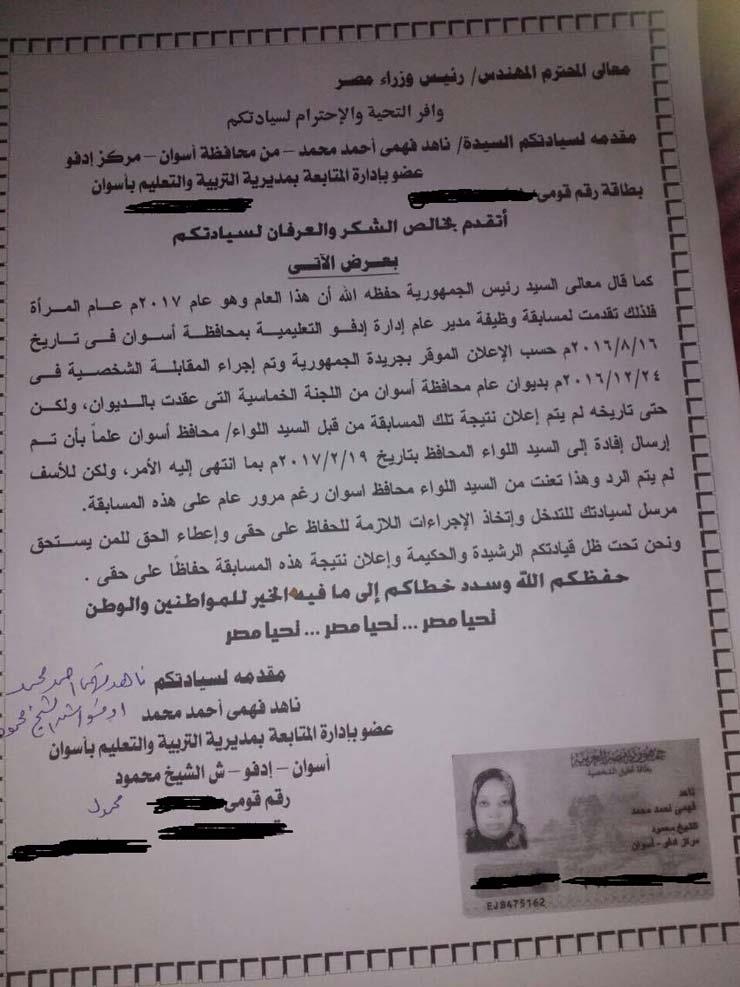 معالى المحترم المهندس/ رئيس وزراء مصر
وافر التحية والإحترام لسيادتكم
مقدمه لسيادتكم السيدة/ ناهد فهمى أحمد محمد – من محافظة أسوان – مركز إدفو
عضو بإدارة المتابعة بمديرية التربية والتعليم بأسوان
بطاقة رقم قومى
أتقدم بخالص الشكر والعرفان لسيادتكم
بعرض الآتى
كما قال معالى السيد رئيس الجمهورية حفظه الله أن هذا العام وهو عام ٢٠١٧م عام المرأة
فلذلك تقدمت لمسابقة وظيفة مدير عام إدارة إدفو التعليمية بمحافظة أسوان فى تاريخ
٢٠١٦/٨/١٦م حسب الإعلان الموقر بجريدة الجمهورية وتم إجراء المقابلة الشخصية فى
٢٠١٦/١٢/٢٤م بديوان عام محافظة أسوان من اللجنة الخماسية التى عقدت بالديوان، ولكن
حتى تاريخه لم يتم إعلان نتيجة تلك المسابقة من قبل السيد اللواء/ محافظ أسوان علماً بأن تم
إرسال إفادة إلى السيد اللواء المحافظ بتاريخ ٢٠١٧/٢/١٩م بما انتهى إليه الأمر، ولكن للأسف
لم يتم الرد وهذا تعنت من السيد اللواء محافظ اسوان رغم مرور عام على هذه المسابقة.
مرسل لسيادتك للتدخل وإتخاذ الإجراءات اللازمة للحفاظ على حقى وإعطاء الحق للمن يستحق
ونحن تحت ظل قيادتكم الرشيدة والحكيمة وإعلان نتيجة هذه المسابقة حفاظًا على حقى .
حفظكم الله وسدد خطاكم إلى ما فيه الخير للمواطنين والوطن
تحيا مصر ... تحيا مصر ... تحيا مصر
مقدمه لسيادتكم ناهد فهمى احمد محمد
ناهد فهمى أحمد محمد ادفو ش الشيخ محمود
عضو بإدارة المتابعة بمديرية التربية والتعليم بأسوان
أسوان – إدفو – ش الشيخ محمود
رقم قومى
جمهورية مصر العربية
بطاقة تحقيق الشخصية
ناهد
فهمى احمد محمد
الشيخ محمود
مركز ادفو - أسوان
EJ8475162